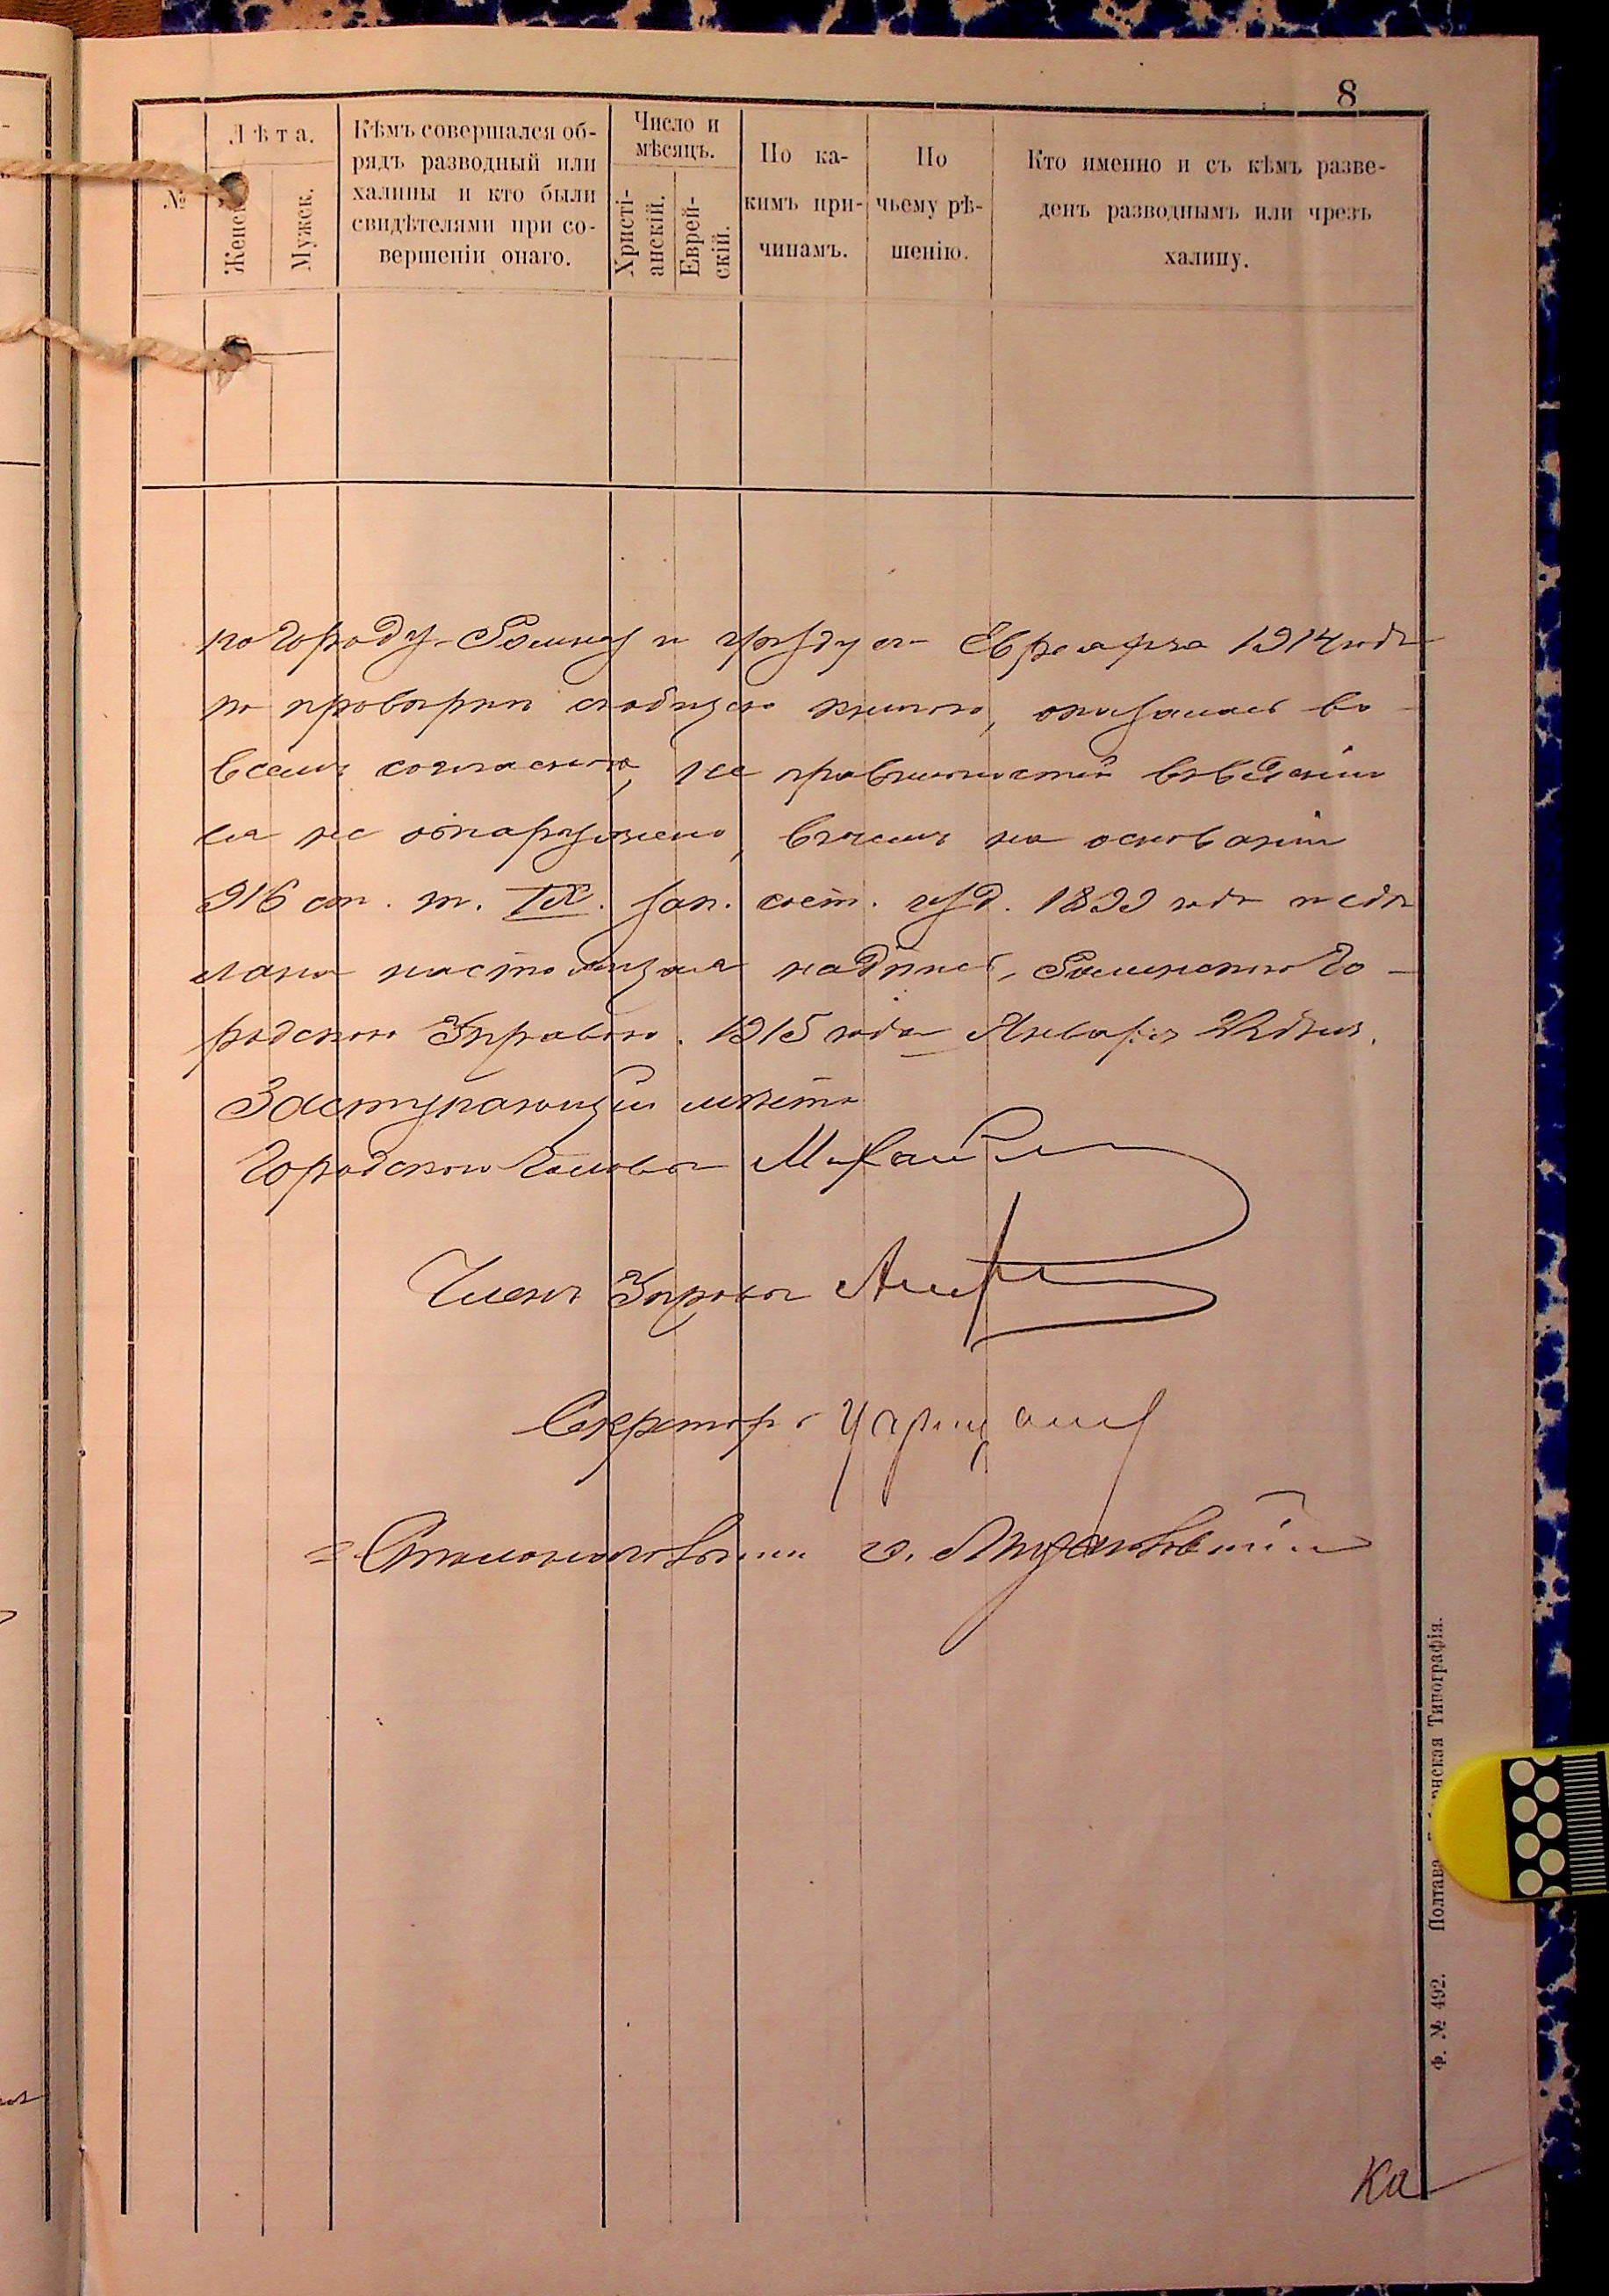 8
№
Лѣта.
Женск.
Мужск.
Кѣмъ совершался об-
рядъ разводный или
халицы и кто были
свидѣтелями при со-
вершеніи онаго.
Число и
мѣсяцъ.
Христі-
анскій.
Еврей-
скій.
По ка-
кимъ при-
чинамъ.
По
чьему рѣ-
шенію.
Кто именно и съ кѣмъ разве-
денъ разводнымъ или чрезъ
халицу.
по городу Ромну и уѣзду Евреяхъ за 1914 годъ
по провѣркѣ книгою, оказалась во
всемъ согласною, не правильностей въ веденіи
ея не обнаружено, въ чемъ на основаніи
916 ст. т. IX. зак. сост. изд. 1899 года и сдѣ
лана настоящая надпись, Роменскою Го-
родскою Управою. 1915 года Января дня.
Заступающій мѣсто
Городского Головы
Членъ Управы
Секретарь
Столоначальникъ
Полтава Типографія.
Ф. № 492.
Ка